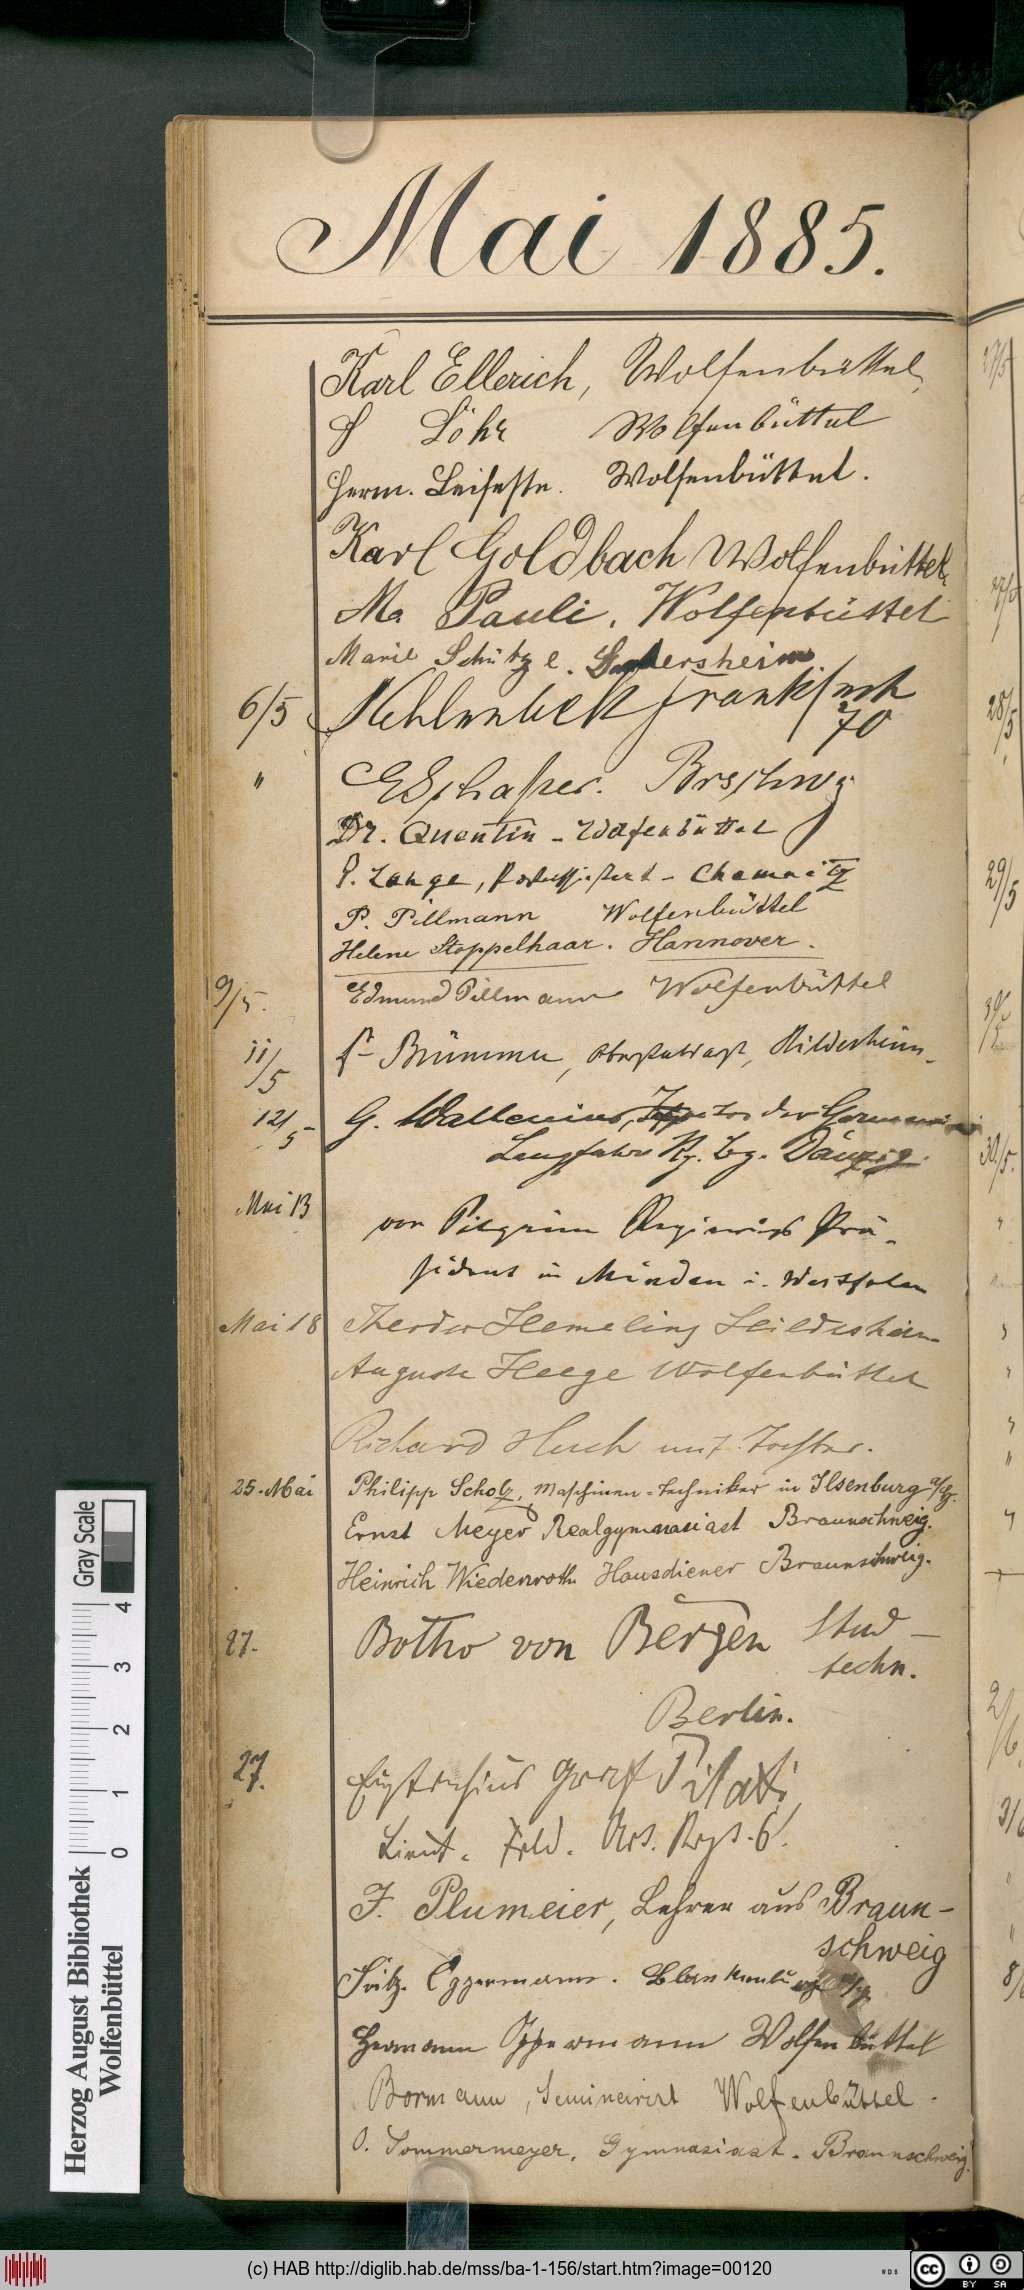 Mai 1885.
Karl Ellerich, Wolfenbüttel,
Löhr Wolfenbüttel
Herm. Leifeste. Wolfenbüttel.
Karl Goldbach Wolfenbüttel,
Ma Pauli. Wolfenbüttel
Marie Schütze.
6/5 Frankfurth
70
" Brschwg
Dr. Quentin - Wolfenbüttel
P. Lange, - Chemnitz
P. Pillmann Wolfenbüttel
Helene Stoppelhaar. Hannover.
9/5. Edmund Pillmann Wolfenbüttel
11/5 Brümmer, Hildesheim.
12/5 G. Wallenius, der Germania
Langfuhr Danzig.
Mai 13 von Pilgrim Regierungs Prä-
sident in Minden i. Westfalen
Mai 18 Theodor Hemeling Hildesheim
Auguste Heege Wolfenbüttel
Richard Huch mit Tochter.
25. Mai Philipp Scholz, Maschinen-Techniker in Ilsenburg a/Hz.
Ernst Meyer Realgymnasiast Braunschweig.
Heinrich Wiedenroth Hausdiener Braunschweig.
27. Botho von Bergen Stud
techn.
Berlin.
27. Graf Pilati
Lieut. Feld. Art. Regt. 6.
F. Plumeier, Lehrer aus Braun-
schweig
Fritz Oppermann. Blankenburg a/Hz
Hermann Oppermann Wolfenbüttel
Bormann, Seminarist Wolfenbüttel.
O. Sommermeyer, Gymnasiast. Braunschweig.
27/5
28/5
29/5
30/5.
Gray Scale
4
3
2
1
0
Herzog August Bibliothek
Wolfenbüttel
(c) HAB http://diglib.hab.de/mss/ba-1-156/start.htm?image=00120
WDB
cc
BY SA